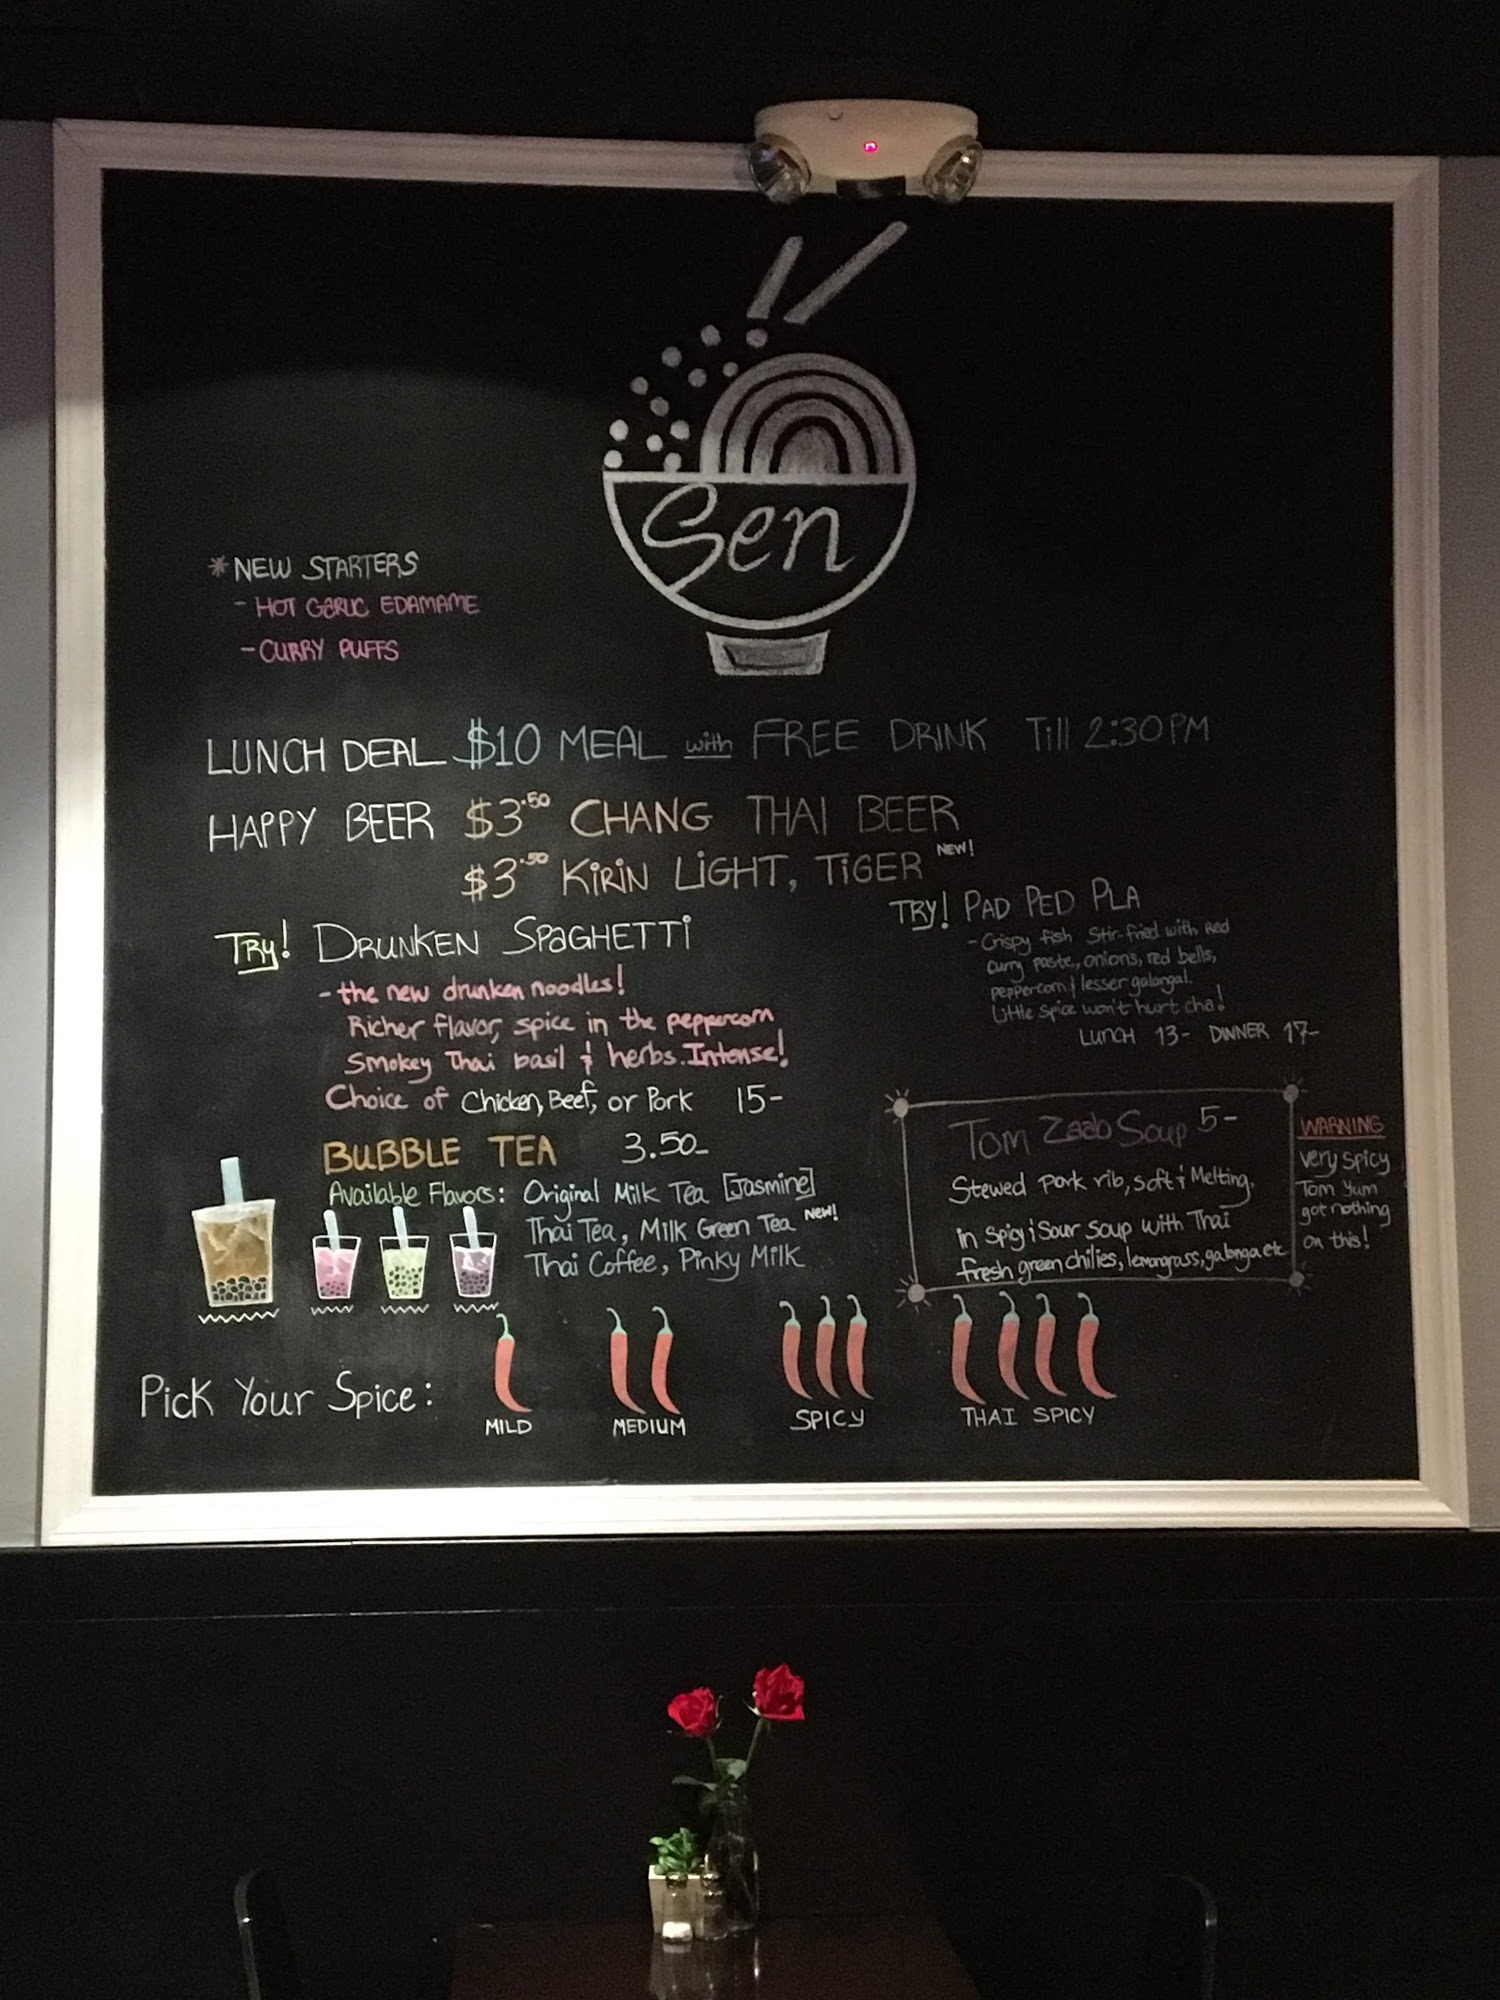 Sen
* NEW STARTERS
- HOT GARLIC EDAMAME
- CURRY PUFFS
LUNCH DEAL $10 MEAL with FREE DRINK Till 2:30PM
HAPPY BEER $3.50 CHANG THAI BEER
$3.50 KIRIN LIGHT, TIGER NEW!
TRY! DRUNKEN SPAGHETTI
- the new drunken noodles!
Richer flavor, spice in the peppercorn
Smokey Thai basil & herbs. Intense!
Choice of Chicken, Beef, or Pork 15-
TRY! PAD PED PLA
- Crispy fish Stir-fried with Red
curry paste, onions, red bells,
peppercorn & lesser galangal.
Little Spice won't hurt cha!
LUNCH 13- DINNER 17-
BUBBLE TEA 3.50-
Available Flavors: Original Milk Tea [Jasmine]
Thai Tea, Milk Green Tea New!
Thai Coffee, Pinky Milk
Tom Zaab Soup 5-
Stewed pork rib, soft & Melting.
in Spicy & Sour soup with Thai
fresh green chilies, lemongrass, galanga etc
WARNING
very spicy
Tom Yum
got nothing
on this!
Pick Your Spice:
MILD
MEDIUM
SPICY
THAI SPICY